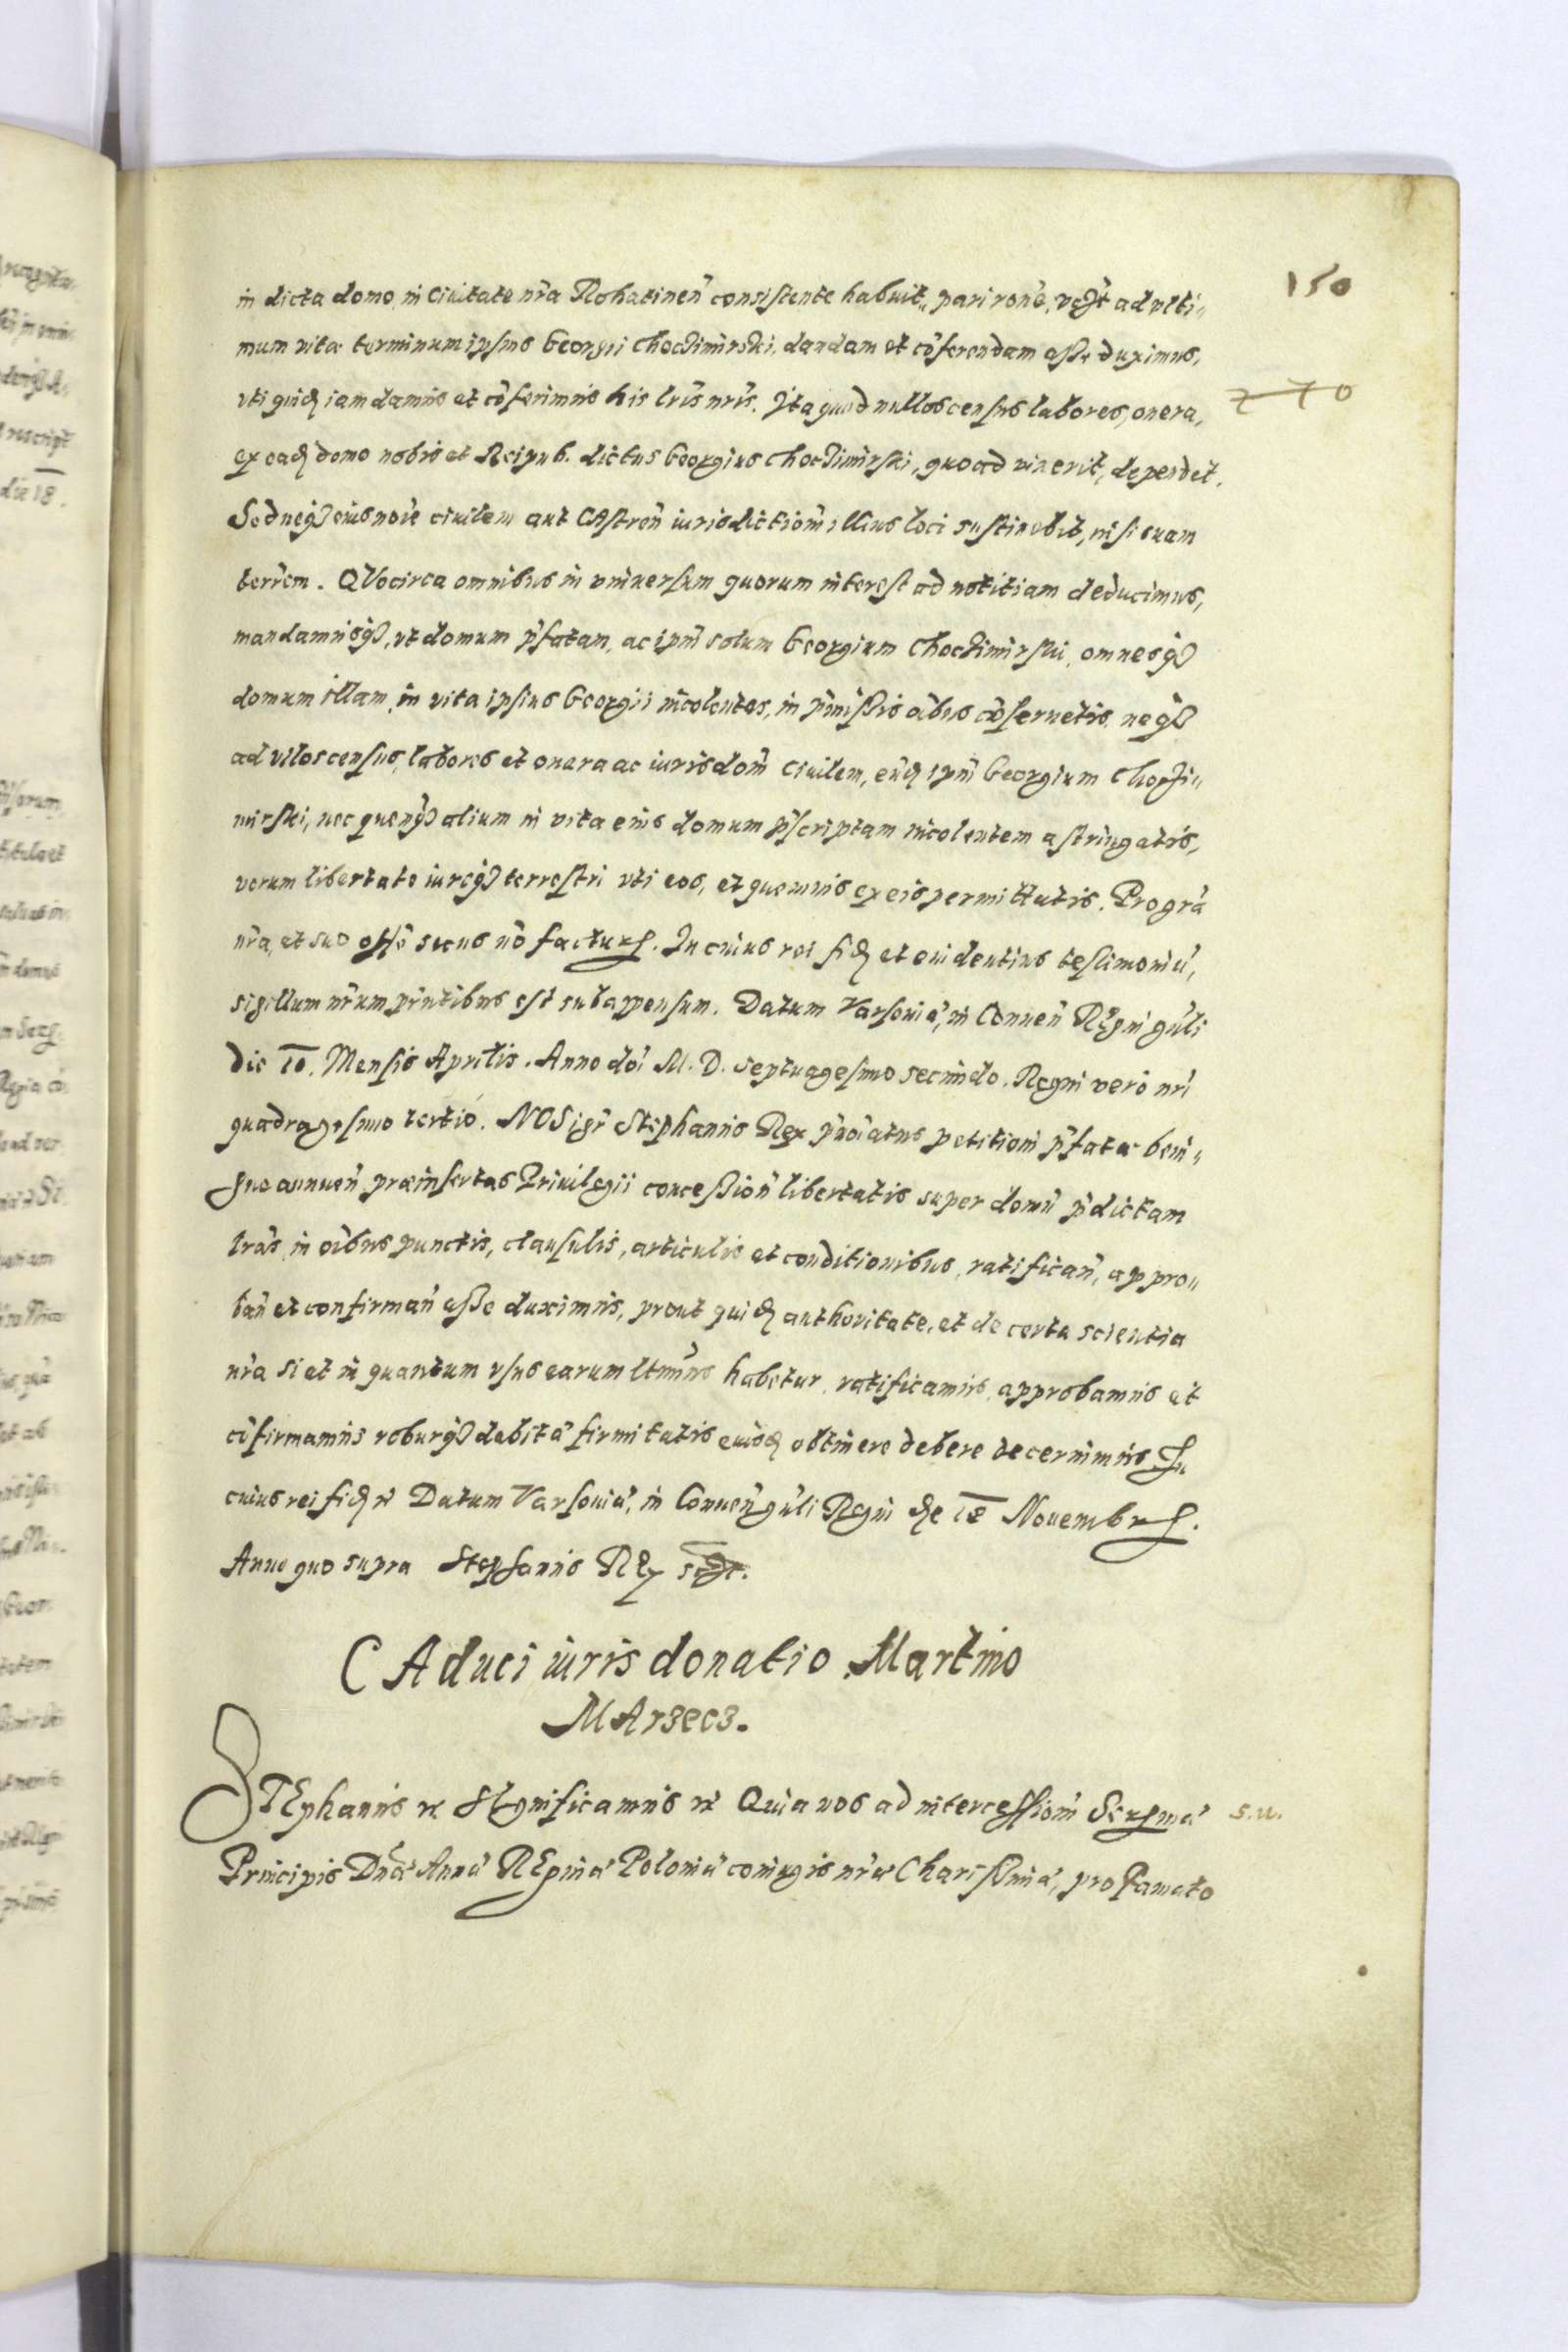 150
in dicta domo in Ciuitate nr̃a Rohatineñ consistente habuit, pari rõne, vẽlit ad vlti„
mum vitæ terminum ipsius Georgii Choczimirski, dandam et cõferendam esse duximus,
vti quidẽ iam damus et cõferimus his lr̃is nr̃is. Ita quod nullos census labores, onera,
270
ex eadẽ domo nobis et Reipub. dictus Georgius Choczimirski, quoad vixerit, dependet.
Sed neq3 eius noĩe ciuilem aut CAstreñ iurisdictioñ illius loci sustinebit, nisi suam
terr̃em. QVocirca omnibus in vniuersum quorum interest ad notitiam deducimus,
mandamusq3, vt domum p̃fatam, ac ipm̃ solum Georgium Choczimirski, omnesq3
domum illam, in vita ipsius Georgii incolentes, in p̃missis oĩbus cõseruetis, neq3
ad vllos census, labores et onera ac iurisdoñ Ciuilem, eundẽ ipm̃ Georgium Choczi„
mirski, nec quenq3 alium in vita eius domum p̃scriptam incolentem astringatis,
verum libertate iureq3 terrestri vti eos, et quemuis ex eis permittatis. Pro gr̃a
nr̃a, et suo offõ secus nõ factur. In cuius rei fidẽ et euidentius testimoniũ,
sigillum nr̃um p̃ntibus est subappensum. Datum Varsouiæ, in Conuen̄ Regni gñli
die 10. Mensis Aprilis. Anno doĩ M. D. septuagesimo secundo. Regni vero nr̃i
quadragesimo tertio. NOS igr̃ Stephanus Rex p̃noĩatus petitioni p̃fatæ beni„
gne annueñ præinsertas Priuilegii concessioñ libertatis super domũ p̃dictam
lr̃as, in oĩbus punctis, clausulis, articulis et conditionibus, ratificañ, appro„
bañ et confirmañ esse duximus, prout quidẽ authoritate, et de certa scientia
nr̃a si et in quantum vsus earum ltm̃us habetur, ratificamus approbamus et
cõfirmamus roburq3 debitæ firmitatis eiusdẽ obtinere debere decernimus. In
cuius rei fidẽ etc Datum Varsouiæ, in Conueñ gñli Regni die 18 Nouembr.
Anno quo supra Stephanus Rex sst.
CAduci iuris donatio Martino
MArzecz.
STEphanus etc SIgnificamus etc Quia nos ad intercessioñ Sermæ s.u.
Principis Dnæ Annæ REginæ Poloniæ coniugis nr̃æ Charissimæ, pro Famato